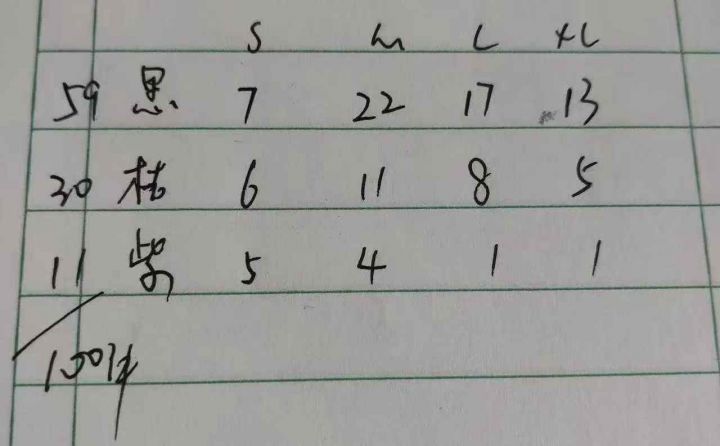 S M L XL
59 黑 7 22 17 13
30 桔 6 11 8 5
11 紫 5 4 1 1
100件